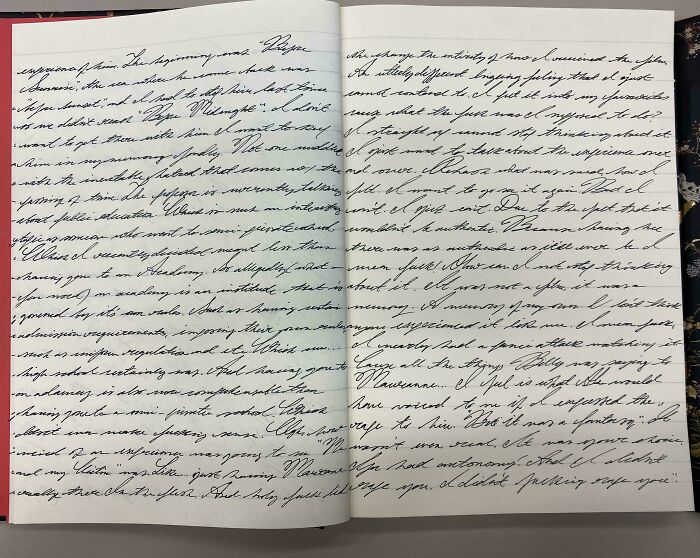 experience of him. The beginning was "Before
Sunrise", the one where he come back was
"before sunset" and I had to stop him last time
us we didn't reach "Before Midnight". I don't
want to get there with him I want to stay
him in my memory of
with the inevitable hatred that comes w/ the
passing of time. The popope is currently talking
about public education. Which is such an interesting
topic as someone who went to a semi-private school
Which I recently decided meant less than
having gone to an Academy. As allegedly (what
you note) an academy is an institute that is
governed by it's own rules. Such as having certain
admission requirements, imposing their own rules
such as uniform regulation and etc. Which un...
high school certainly was. And having gone to
an adacmey is also more comprehensible than
having gone to a semi-private school. Which
doesn't even make fucking sense. Ugh, how
weird of an experience was going to see "Ma
and my Victim" was like. just having Maureane
actually there In the flesh. And holy fuck did
the change the intensity of how I received the film.
An utterly different lingering feeling that I ojust
cannot contend to. I put it into my favourites
cause what the fuck was I supposed to do?
I straight up cannot stop thinking about it
I ojust want to talk about the experience over
and over. Rehash what was said, how I
felt. I want to go see it again But I
can't. I ojust can't. Due to the fact that it
wouldn't be authentic. Because having her
there was as authentic as it'll ever be. I
mean fuck! How can I not stop thinking
about it. It was not a film, it was a
memory. A memory of my own. I bet think
anyone experienced it like me. I mean fuck,
I nearly had a panic attack watching it
Cause all the things Billy was saying to
Maureanne... I feel is what he would
have voiced to me if I confessed the
rage to him. "But it was a fantasy". It
wasn't even real. She was ojour choice,
She had autonomy. And I didn't
rage you. I didn't fucking rage you".